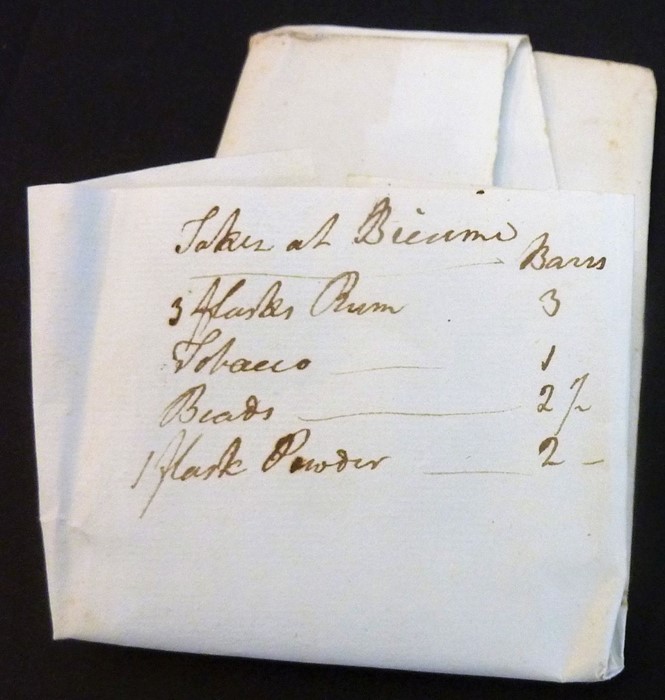 Taken at Bieume
Barrs
3 flasks Rum 3
Tobacco 1
Beads 2/-
1 flask Powder 2 -